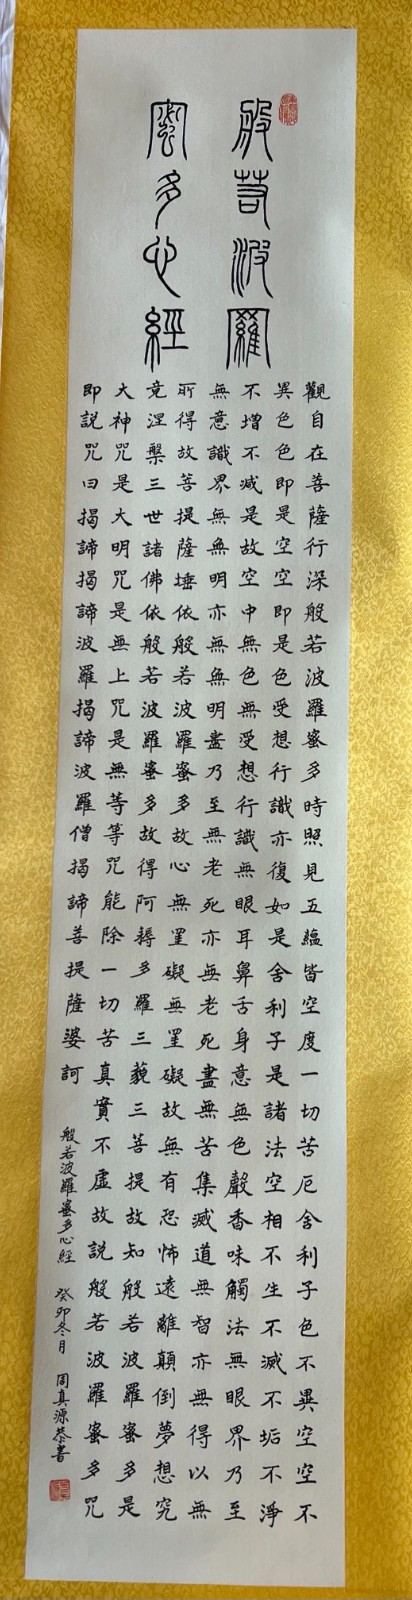 般若波羅
蜜多心經
觀自在菩薩行深般若波羅蜜多時照見五蘊皆空度一切苦厄舍利子色不異空空不
異色色即是空空即是色受想行識亦復如是舍利子是諸法空相不生不滅不垢不淨
不增不減是故空中無色無受想行識無眼耳鼻舌身意無色聲香味觸法無眼界乃至
無意識界無無明亦無無明盡乃至無老死亦無老死盡無苦集滅道無智亦無得以無
所得故菩提薩埵依般若波羅蜜多故心無罣礙無罣礙故無有恐怖遠離顛倒夢想究
竟涅槃三世諸佛依般若波羅蜜多故得阿耨多羅三藐三菩提故知般若波羅蜜多是
大神咒是大明咒是無上咒是無等等咒能除一切苦真實不虛故說般若波羅蜜多咒
即說咒曰揭諦揭諦波羅揭諦波羅僧揭諦菩提薩婆訶
般若波羅蜜多心經 癸卯冬月 周真源恭書